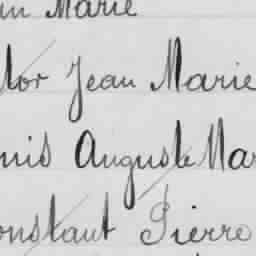 an Marie
tor Jean Marie
nis Auguste Mar
onstant Pierre